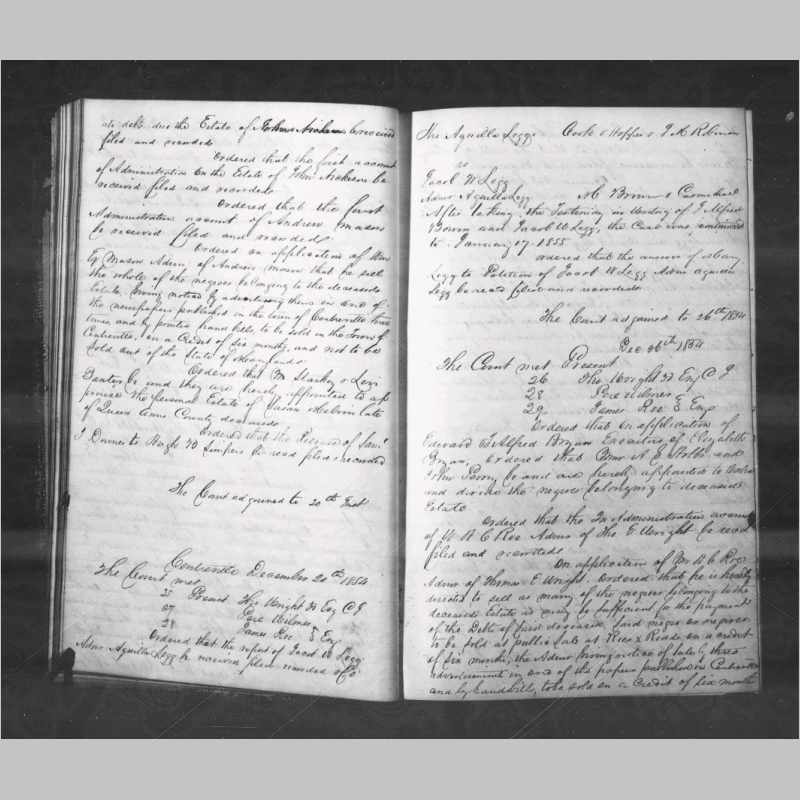 ate debts due the Estate of be received
filed and recorded
Ordered that the first account
of Administration on the Estate of John be
received filed and recorded
Ordered that the first
Administration account of Andrew Mason
be received filed and recorded
Ordered on application of Wm
Mason Admr of Andrew Mason that he sell
the whole of the negroes belonging to the deceaseds
Estate, giving notice by advertising them in one of
the newspapers published in the town of Centreville three
times and by printed hand bills, to be sold in the Town of
Centreville, on a Credit of six months, and not to be
Sold out of the State of Maryland
Ordered that M Starkey & Levi
be and they are hereby appointed to ap
praise the personal Estate of Susan late
of Queen Anns County deceased
Ordered that the of Saml
T to Hugh be recd filed & recorded
The Court adjourned to 20th Inst
Centreville December 20th 1854
The Court met
Present Tho Wright 3d Esq C J
27
28 James Roe Esq
Ordered that the report of Jacob W Legg
Admr Aquilla Legg be received filed recorded
Tho Aquilla Legg Cooke & Hopper & J A
vs
Jacob W Legg
Admr Aquilla Legg Brown & Carmichael
After taking the Testimony in writing of J Alfred
and Jacob W Legg, the Case was continued
to January 17 1855
ordered that the answer of Mary
Legg to Petition of Jacob W Legg Admr Aquilla
Legg be recd filed and recorded
The Court adjourned to 26th 1854
Dec 26th 1854
The Court met Present
26 Tho Wright 3d Esq C J
28
29 James Roe Esq
Ordered that on application of
Edward & Alfred Bryan Executors of Elizabeth
Bryan, Ordered that and
John Perry be and are hereby appointed to
and divide the negroes belonging to deceaseds
Estate
Ordered that the Administration account
of W H C Roe Admr of Tho E Wright be recd
filed and recorded
On application of Wm H C Roe
Admr of Thomas E Wright, Ordered that he is hereby
directed to sell as many of the negroes belonging to the
deceaseds Estate as may be sufficient for the payment
of the Debts of said deceased, said negro or negroes
to be sold at public sale at Roes X Roads on a credit
of six months, the Admr giving notice of sale by three
advertisements in one of the papers published in Centreville
and by handbills, to be sold on a Credit of Six months